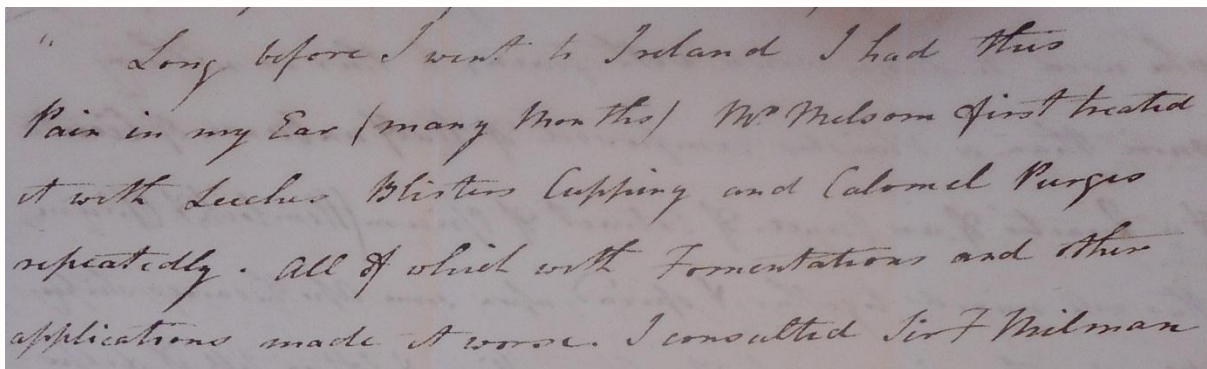 " Long before I went to Ireland I had this
Pain in my Ear (many Months) Mr Melsom first treated
it with Leeches Blisters Cupping and Calomel Purges
repeatedly. All of which with Fomentations and other
applications made it worse. I consulted Sir F Milman